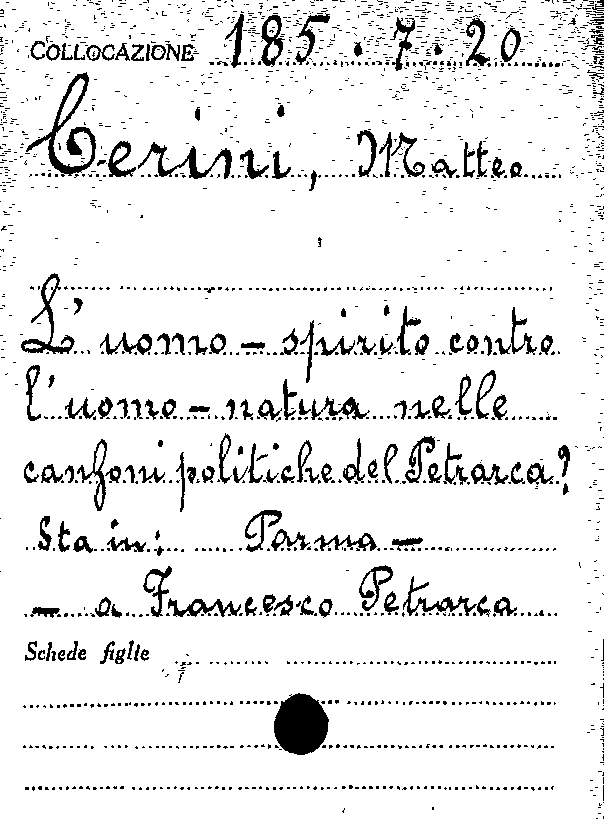 COLLOCAZIONE 185.7.20
Cerini, Matteo
L'uomo - spirito contro
l'uomo - natura nelle
canzoni politiche del Petrarca?
Sta in: Parma -
- a Francesco Petrarca
Schede figlie